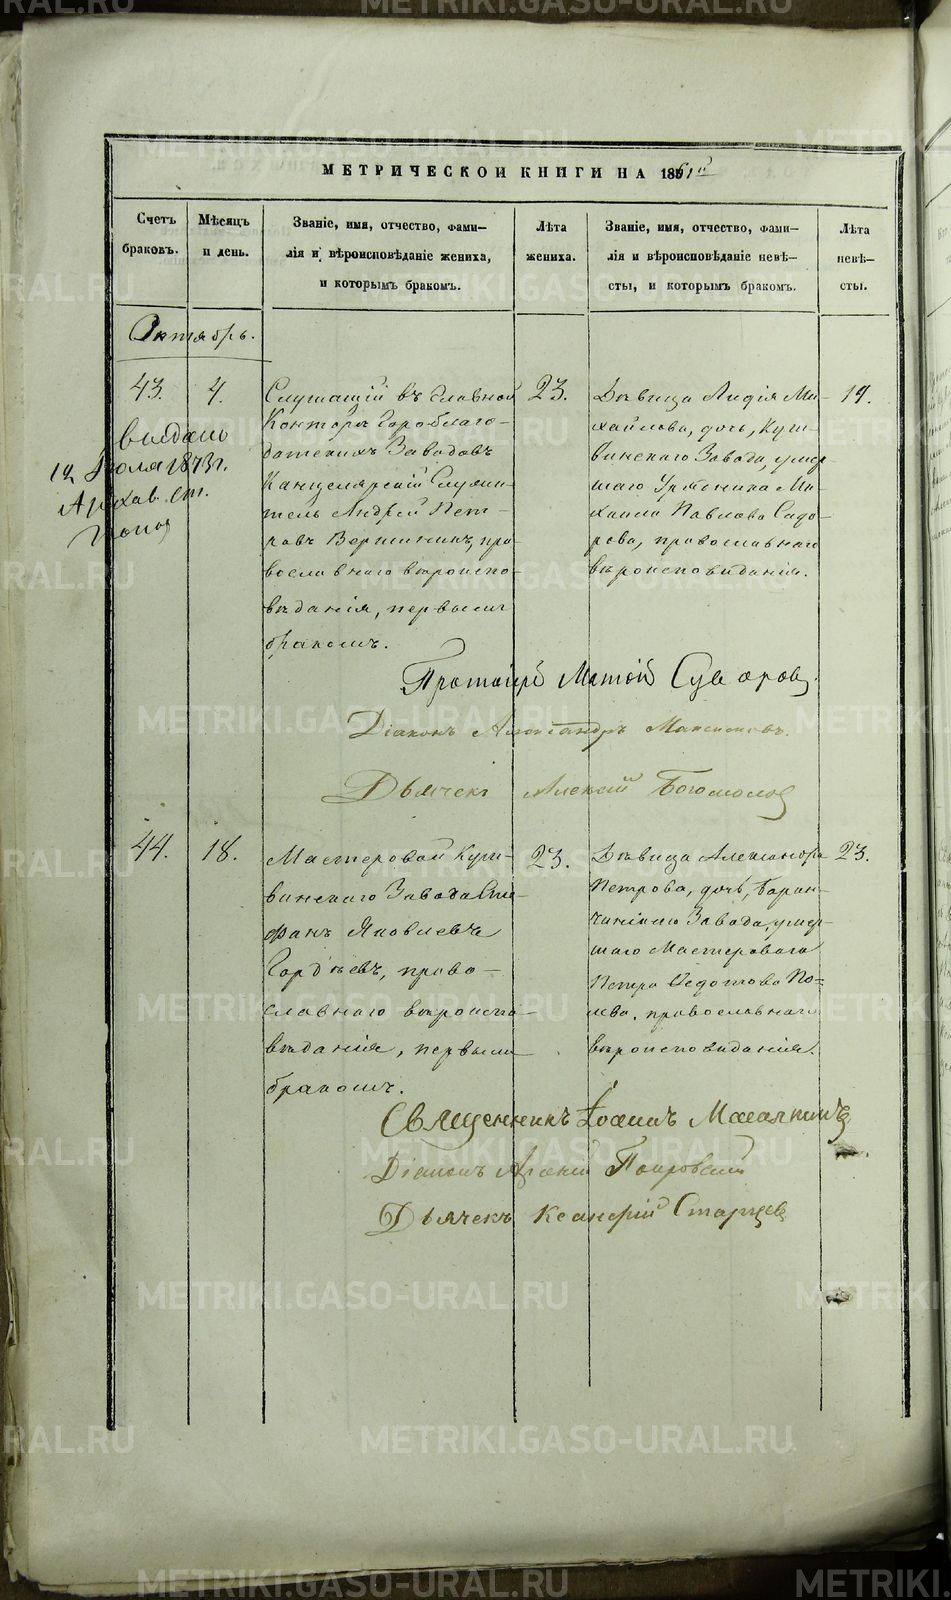 МЕТРИЧЕСКОЙ КНИГИ НА 1861й
Счетъ браковъ.
Мѣсяцъ и день.
Званіе, имя, отчество, фами-
лія и вѣроисповѣданіе жениха,
и которымъ бракомъ.
Лѣта
жениха.
Званіе, имя, отчество, фами-
лія и вѣроисповѣданіе невѣ-
сты, и которымъ бракомъ.
Лѣта
невѣ-
сты.
Октябрь.
43.
4.
Служащій въ Главной
Конторѣ Гороблаго-
датскихъ Заводовъ
Канцелярскій Служи-
тель Андрей Пет-
ровъ Вершининъ, пра-
вославнаго вѣроиспо-
вѣданія, первымъ
бракомъ.
23.
Дѣвица Лидія Ми-
хайлова, дочь, Куш-
винскаго Завода, умер-
шаго Урядника Ми-
хаила Павлова Сидо-
рова, православнаго
вѣроисповѣданія.
19.
выдано
12 Іюля 1873 г.
Протоіерей Суворовъ.
Діаконъ Александръ Максимовъ.
Дьячекъ Алексій Богомоловъ
44.
18.
Мастеровой Куш-
винскаго Завода Сте-
фанъ Яковлевъ
Гордѣевъ, право-
славнаго вѣроиспо-
вѣданія, первымъ
бракомъ.
23.
Дѣвица Александра
Петрова, дочь, Баран-
чинскаго Завода, умер-
шаго Мастероваго
Петра Ѳедотова По-
православнаго
вѣроисповѣданія.
23.
Священникъ Іоаннъ
Діаконъ Покровскій
Дьячекъ Ксанфій Старцевъ
METRIKI.GASO-URAL.RU